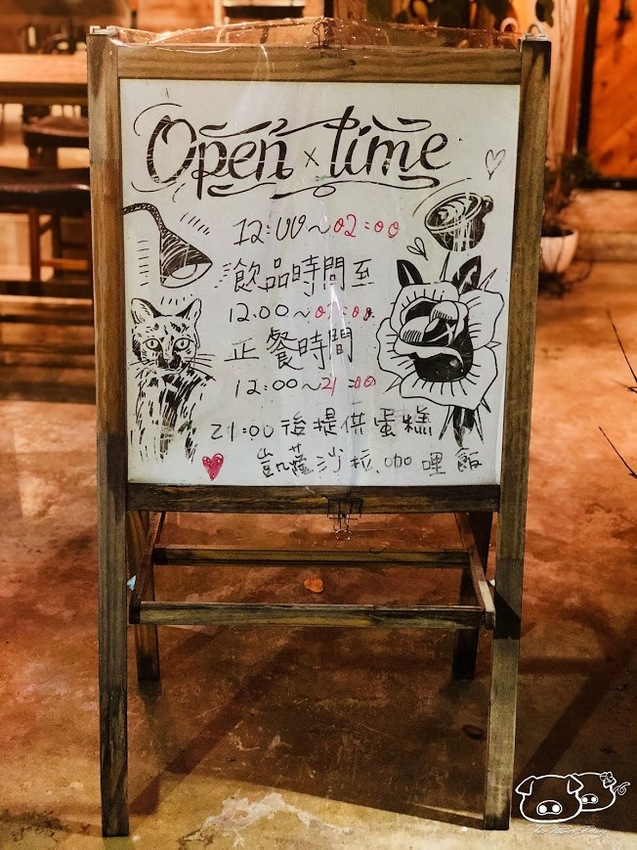 Open x time
12:00~02:00
飲品時間至
12:00~01:00
正餐時間
12:00~21:00
21:00後提供蛋糕
凱薩沙拉咖哩飯